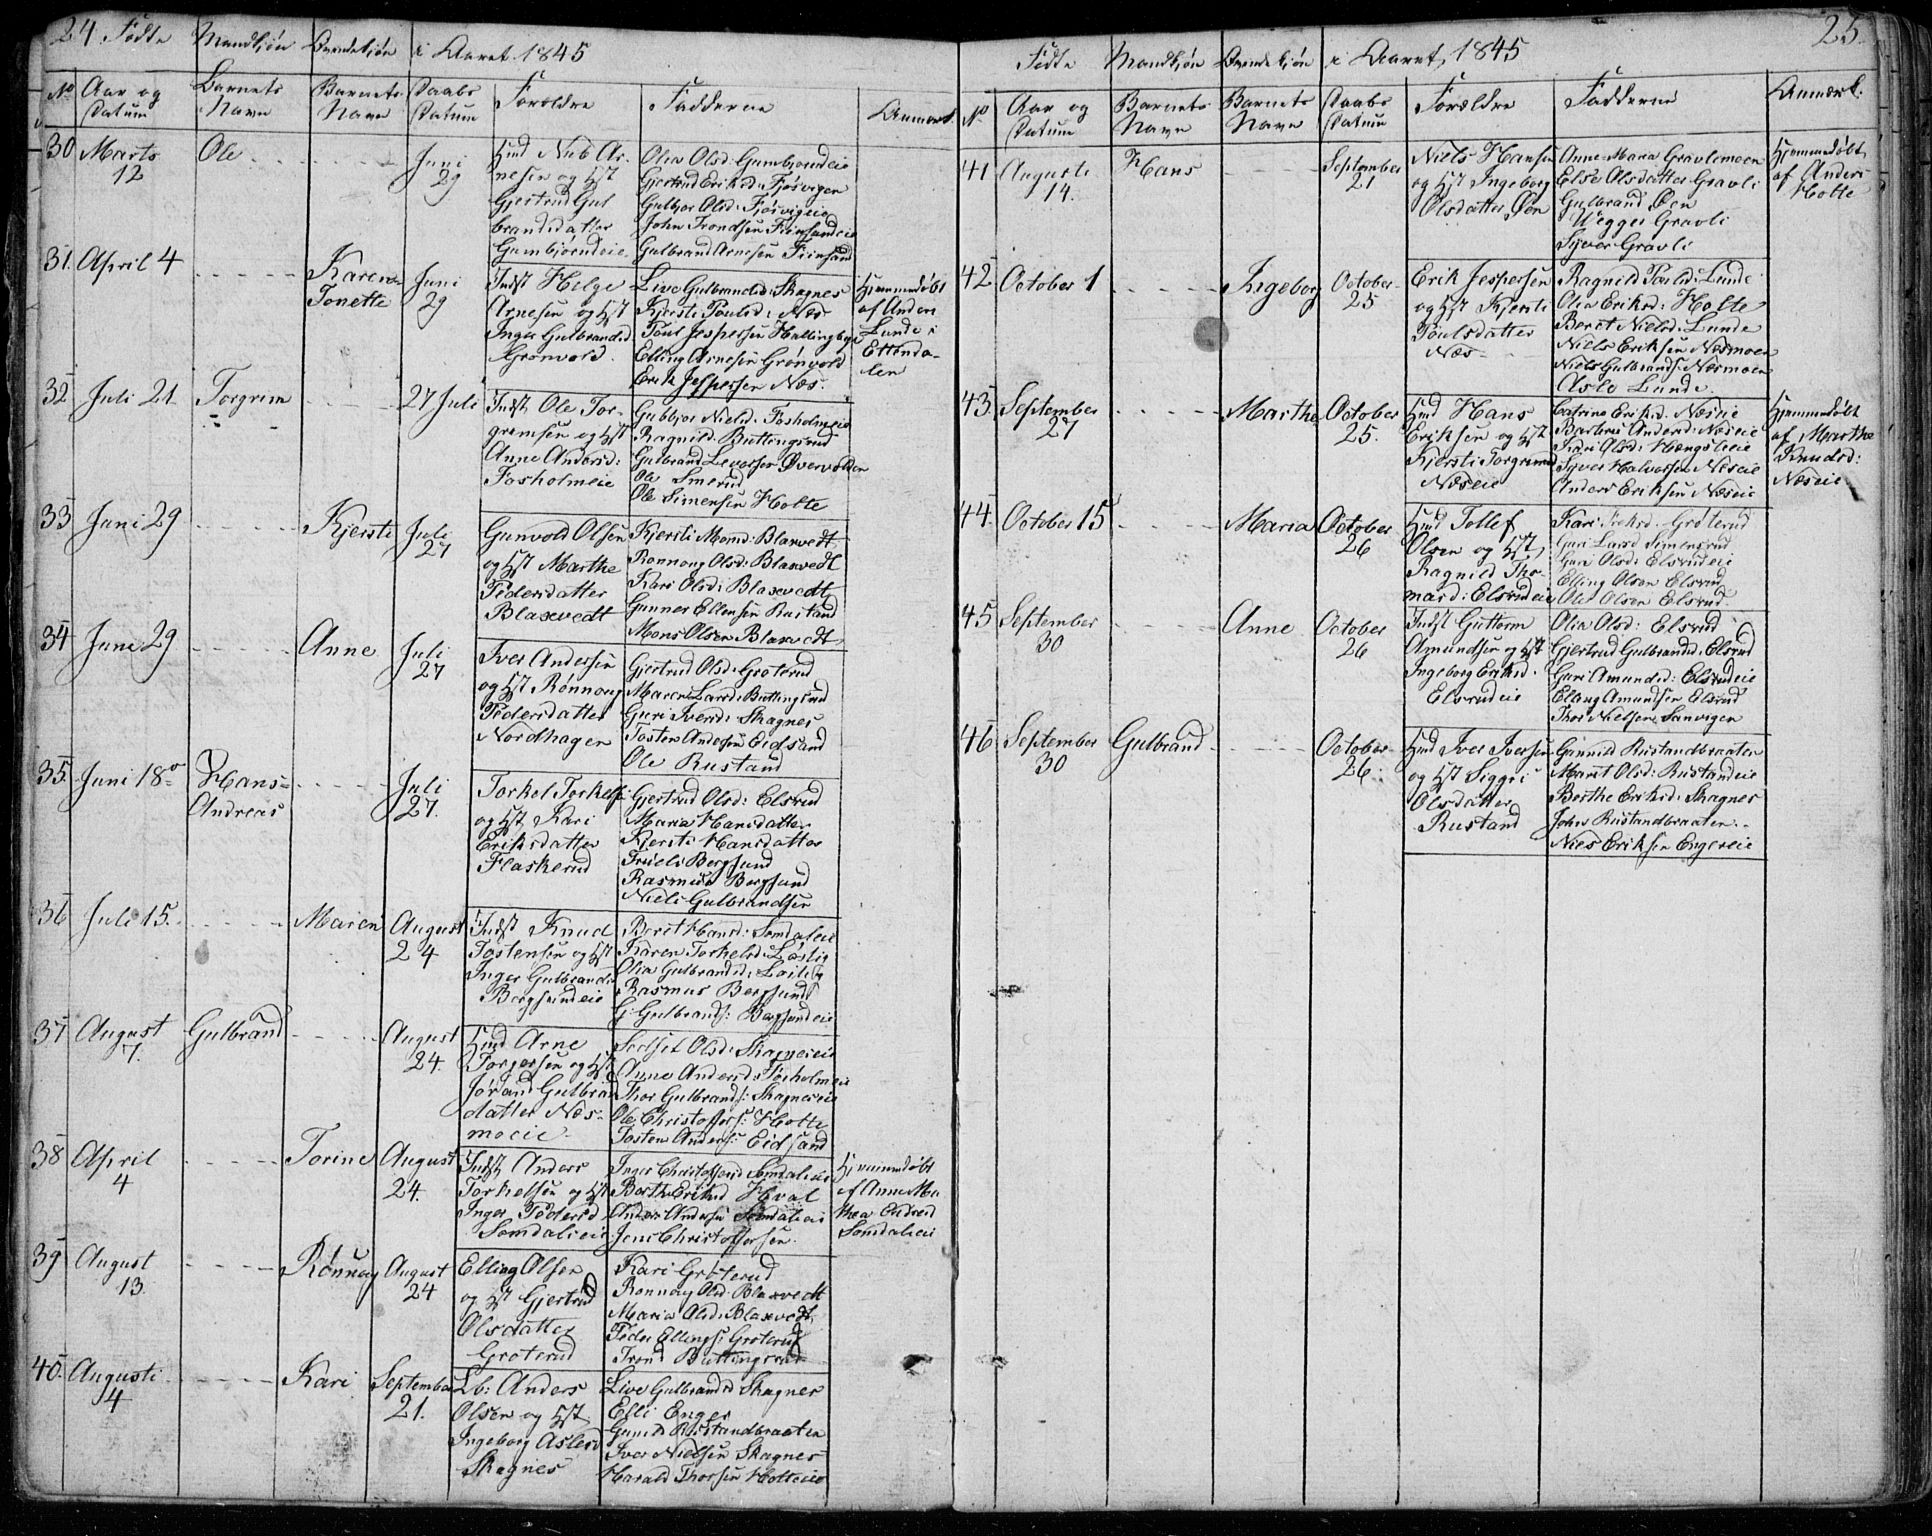 24. Fødte Mandkjøn Qvindekjøn i Aaret 1845
No Aar og Datum Barnets Navn Barnets Navn Daabs Datum Forældre Fadderne Anmerk.
30 Marts 12 Ole Juni 29
Hmd Nub Ar-
nesen og Hst
Gjertrud Gul
brandsdatter
Gumbjørndeie
Olia Olsd: Gumbjørndeie
Gjertrud Eriksd: Fjøsvigen
Gulbjør Olsd: Fjøsvigeie
John Trondsen Fiinsandeie
Gulbrand Arnesen Fiinsand
31. April 4 Karen Tonette Juni 29
Indst Helge
Arnesen og Hst
Inger Gulbrandsd
Grønvold.
Live Gulbrandsd: Skagnes
Kjersti Poulsd: Næs
Poul Jespersen Hallingbye
Elling Arnesen Grønvold
Erik Jespersen Næs.
Hjemmedøbt
af Anders
Lunde i
Ettenda-
len
32 Juli 21 Torgrim 27 Juli
Indst Ole Tor-
gremsen og Hst
Anne Andersd:
Fosholmeie
Gubbjør Nielsd: Fosholmeie
Ragnild Buttingsrud
Gulbrand Leversen Øvervolden
Ole Smerud
Ole Simensen Holte
33 Juni 29 Kjersti Juli 27
Gunvold Olsen
og Hst Marthe
Pedersdatter
Blaxevedt
Kjersti Monsd: Blaxvedt
Ronnong Olsd: Blaxvedt
Kari Olsd: Blaxevedt
Gunner Ellensen Rustand
Mons Olsen Blaxvedt
34 Juni 29 Anne Juli 27
Iver Andersen
og Hst Rønnong
Pedersdatter
Nordhagen
Gjertrud Olsd: Grøterud
Maren Larsd: Buttingsrud
Guri Iversd: Skagnes
Tosten Andersen Eidsand
Ole Rustand
35. Juni 18 Hans Andreas Juli 27.
Torkel Torkels:
og Hst Kari
Eriksdatter
Flaskerud
Gjertrud Olsd: Elsrud
Maria Hansdatter
Kjersti Hansdatter
Truels Bergsund
Rasmus Bergsund
Niels Gulbrandsen
36 Juli 15. Maren August 24
Indst Knud
Tostensen og Hst
Inger Gulbrandsd
Bergsundeie
Berit Hansd: Somdaleie
Karen Torkelsd: Løslig
Olia Gulbrandsd:
Rasmus Bergsund
G: Gulbrands: Bergsundeie
37 August 7. Gulbrand August 24.
Hmd Arne
Torgersen og Hst
Jøran Gulbran
datter Næs-
moeie
Sidsel Olsd: Skagneseie
Anne Andersd: Fosholmeie
Thor Gulbrands: Skagneseie
Ole Christoffers: Holte
Tosten Anders: Eidsand
38 April 4 Torine August 24.
Indst Anders
Torkelsen og Hst
Inger Pedersd
Somdalieie
Inger Christoffersd Somdalieie
Berthe Eriksd Hval
Anders Andersen Somdalieie
Jens Christoffersen.
Hjemmedøbt
af Anne Ma
thea Andersd
Somdalieie
39 August 13. Rønnoy August 24
Elling Olsen
og Hst Gjertrud
Olsdatter
Grøterud
Kari Grøterud
Ronnoy Olsd: Blaxvedt
Maria Olsd: Blaxvedt
Peder Ellings: Grøterud
Trond Buttingsrud
40. Augusti 4 Kari September 21.
Lb: Anders
Olsen og Hst
Ingeborg Aslesd
Skagnes
Live Gulbrandsd Skagnes
Elli Enger
Gunild Rustandbraaten
Iver Nielsen Skagnes
Harald Thorsen Holteeie
Fødte Mandkjøn Qvindekjøn i Aaret, 1845 25.
No Aar og Datum Barnets Navn Barnets Navn Daabs Datum Forældre Fadderne Anmerk:
41 Augusti 14. Hans September 21
Niels Hansen
og Hst Ingeborg
Olsdatter Øen
Anne Maria Gravlemoen
Else Olsdatter Gravli
Gulbrand Øen
Wegger Gravli
Syver Gravli
Hjemmedøbt
af Anders
Holte
42 October 1 Ingeborg October 25
Erik Jespersen
og Hst Kjersti
Poulsdatter
Næs
Ragnild Poulsd: Lunde
Olia Eriksd: Holte
Berit Nielsd: Lunde
Niels Eriksen Næsmoen
Niels Gulbrands: Næsmoen
Asle Lunde
43. September 27 Marthe October 25.
Hmd Hans
Eriksen og Hst
Kjersti Torgrimsd
Næseie
Catrine Eriksd: Næseie
Barbroe Andersd: Næseie
Kari Olsd: Hængslieie
Syver Halvorsen Næseie
Anders Eriksen Næseie
Hjemmedøbt
af Marthe
Knudsd:
Næseie
44. October 15 Maria October 26
Hmd Tollef
Olsen og Hst
Ragnild Tho-
masd: Elsrudeie
Kari Grøterud
Guri Larsd Simensrud
Guri Olsd: Elsrudeie
Elling Olsen Elsrud
Ole Olsen Elsrud.
45 September 30 Anne October 26
Indst Guttorm
Amundsen og Hst
Ingeborg Eriksd.
Elsrudeie
Olia Olsd: Elsrud
Gjertrud Gulbrandsd. Elsrud
Guri Amundsd: Elsrudeie
Elling Amundsen Elsrud
Thor Nielsen Sanvigen
46 September 30 Gulbrand October 26.
Hmd Iver Iversen
og Hst Siggri
Olsdatter
Rustand
Gunild Rustandbraaten
Marit Olsd: Rustandeie
Berthe Eriksd: Skagnes
John Rustandbraaten
Niels Eriksen Engereie